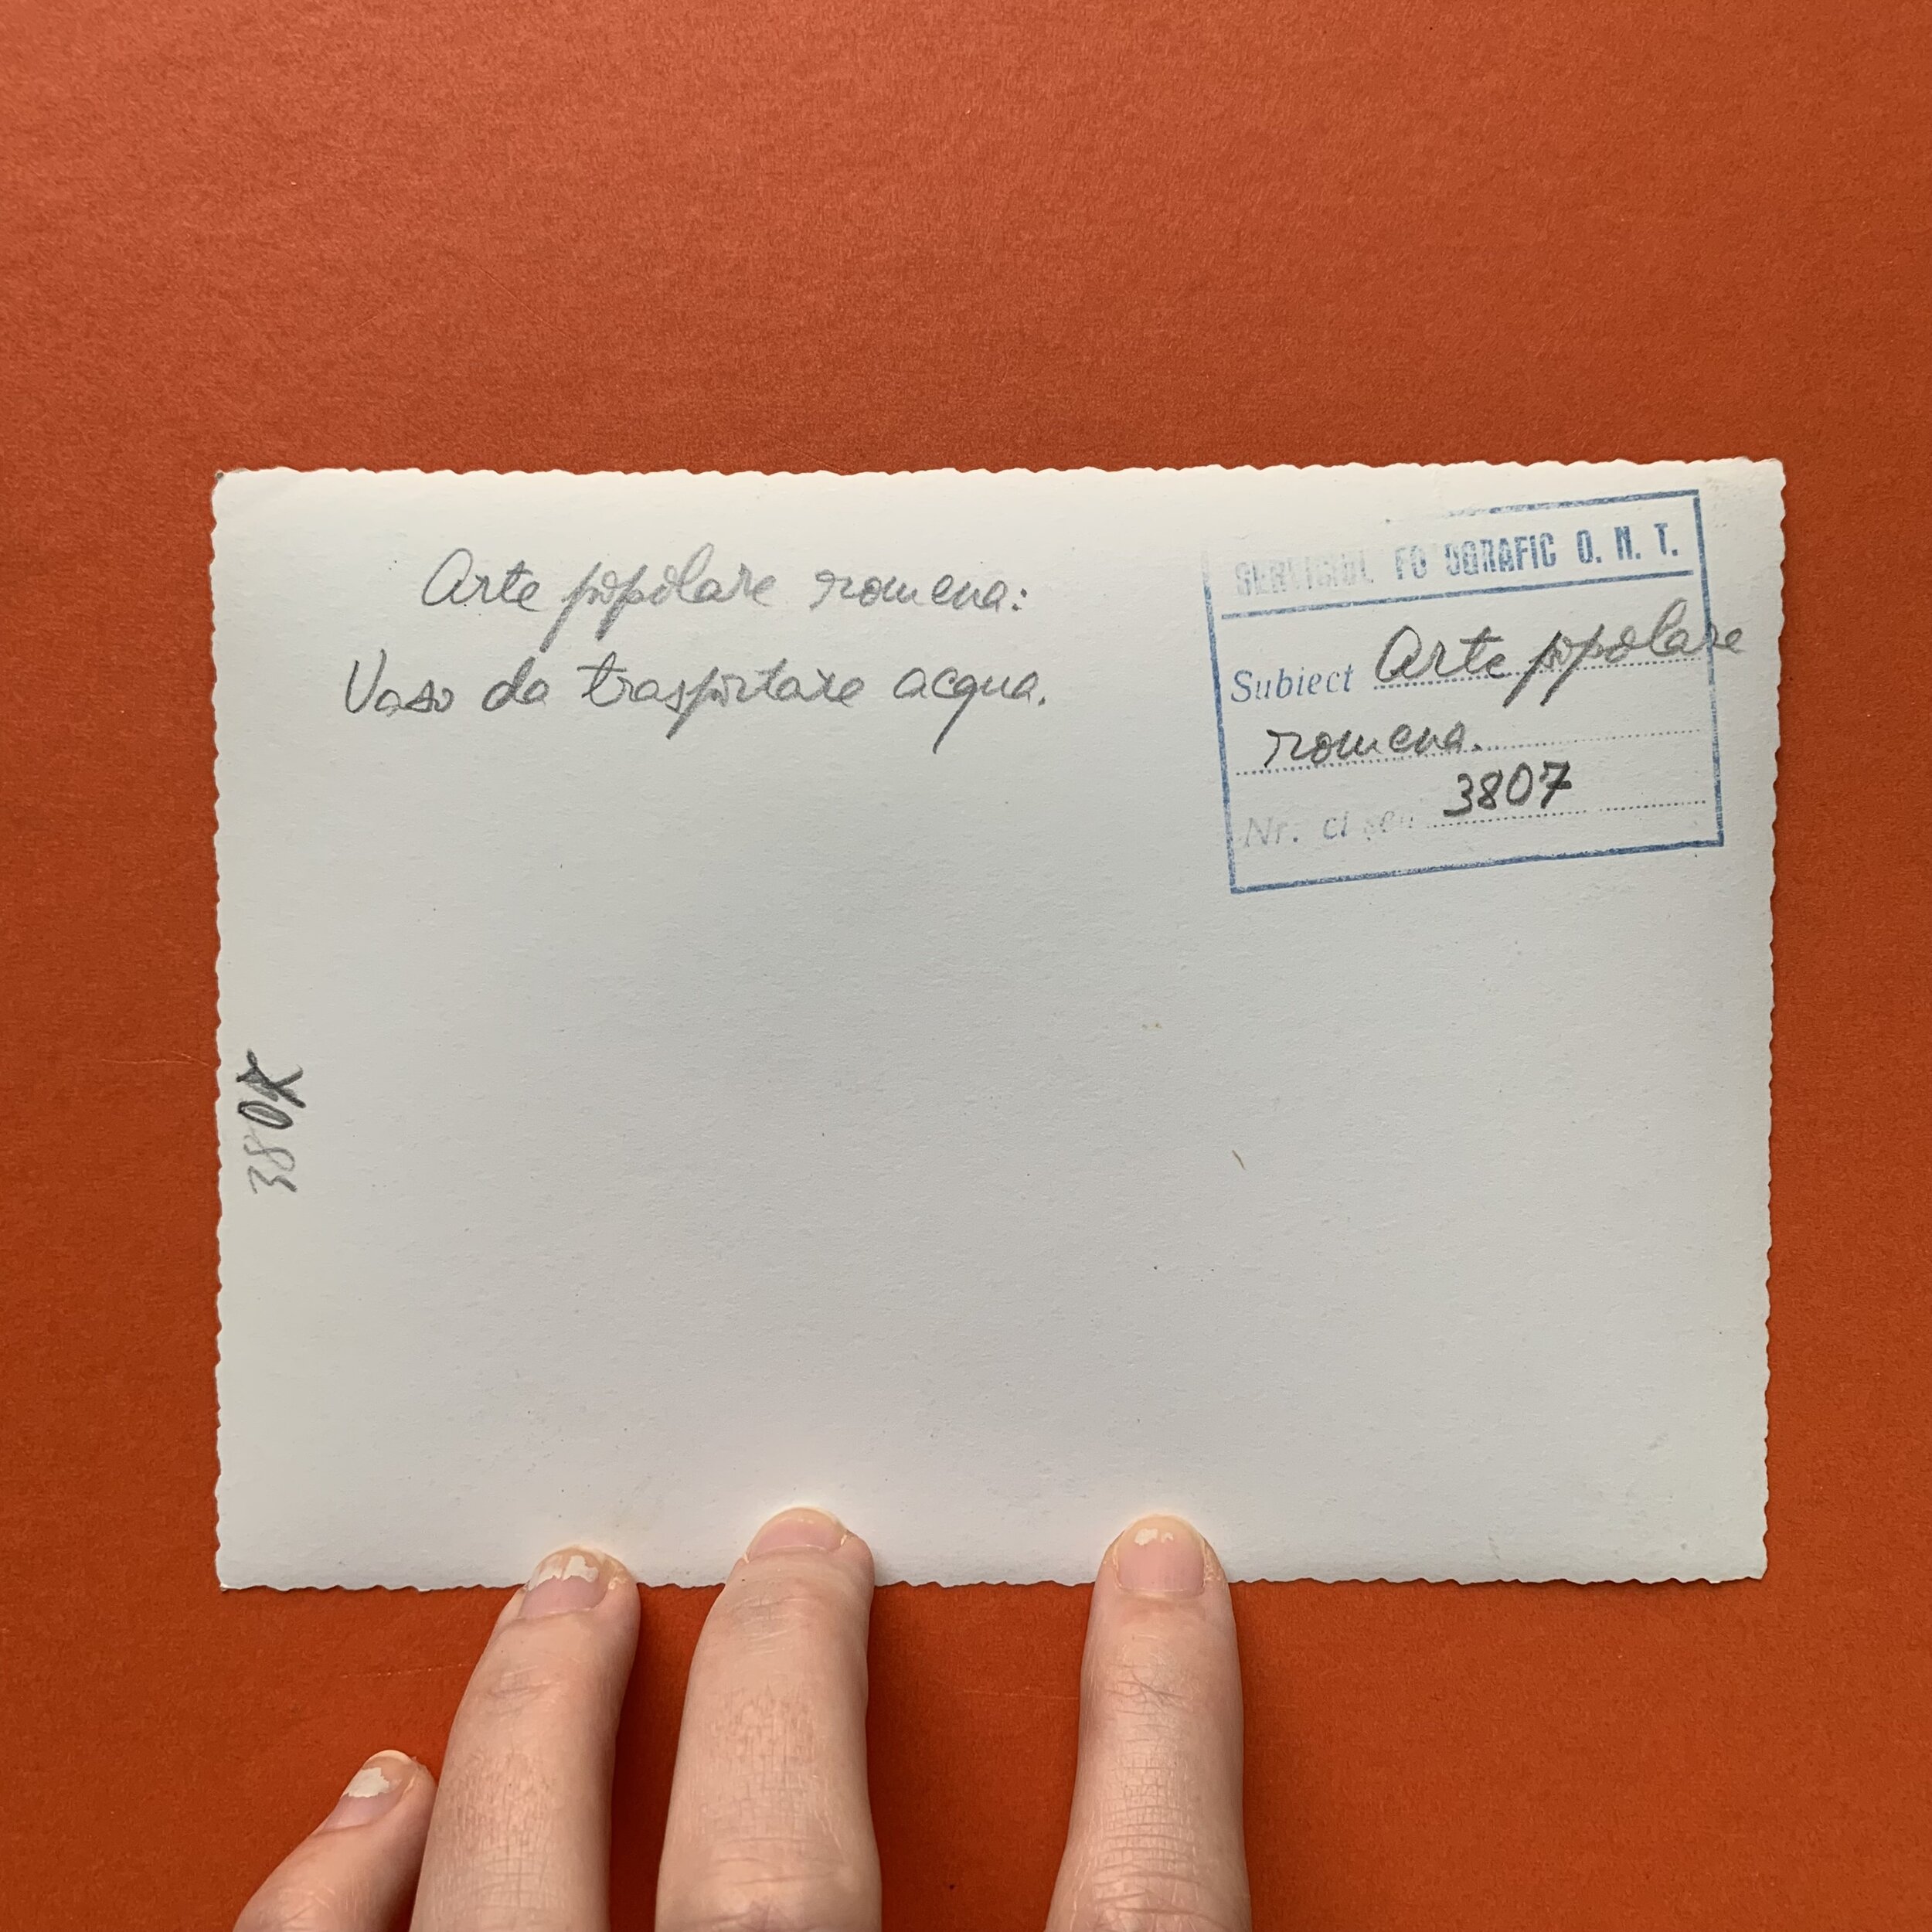 Arte popolare romena:
Vaso da trasportare acqua.
SERVICIUL FOTOGRAFIC O. N. T.
Subiect Arte popolare
romena.
Nr. 3807
3807